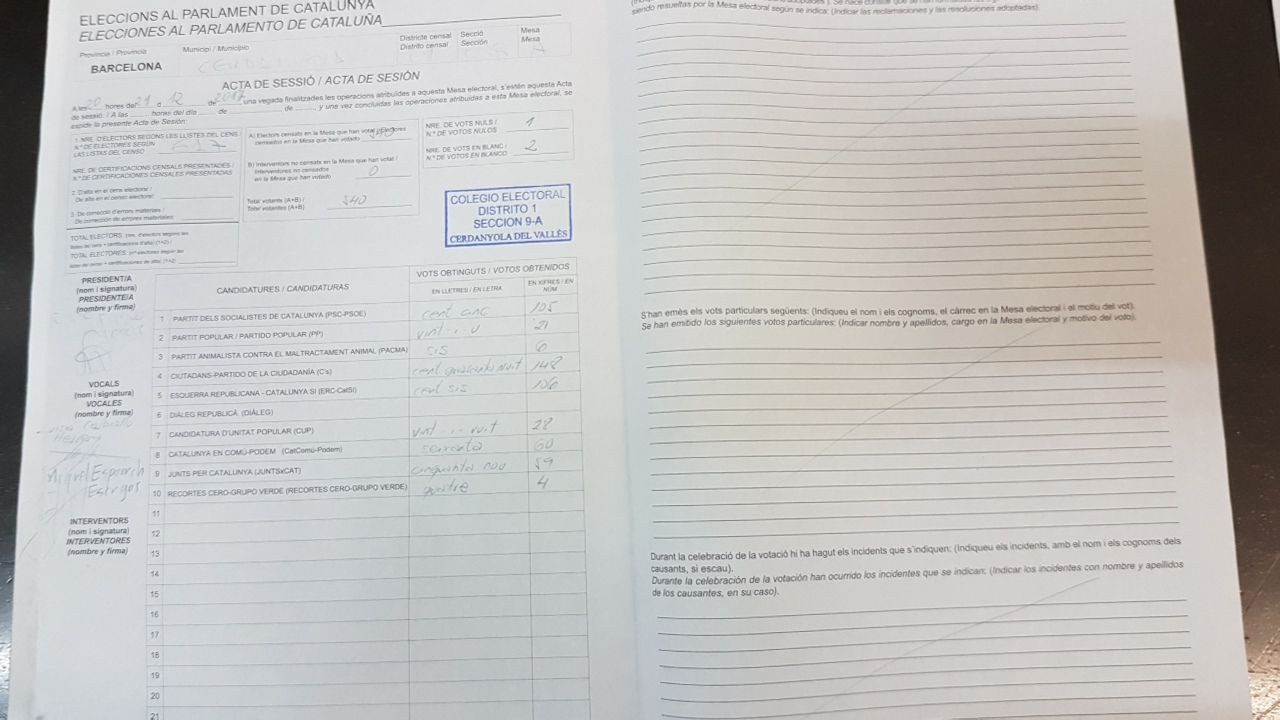 ELECCIONS AL PARLAMENT DE CATALUNYA
ELECCIONES AL PARLAMENTO DE CATALUÑA
Província / Provincia
Municipi / Municipio
Districte censal
Distrito censal
Secció
Sección
Mesa
Mesa
BARCELONA
ACTA DE SESSIÓ / ACTA DE SESIÓN
A les 20 hores del 21 d 12 de 2017 una vegada finalitzades les operacions atribuïdes a aquesta Mesa electoral, s'estén aquesta Acta
de sessió: / A las ...... horas del día ...... de ...... de ......, y una vez concluidas las operaciones atribuidas a esta Mesa electoral, se
expide la presente Acta de Sesión:
1. NRE. D'ELECTORS SEGONS LES LLISTES DEL CENS
N.º DE ELECTORES SEGÚN
LAS LISTAS DEL CENSO
NRE. DE CERTIFICACIONS CENSALS PRESENTADES /
N.º DE CERTIFICACIONES CENSALES PRESENTADAS
2. D'alta en el cens electoral /
De alta en el censo electoral:
3. De correcció d'errors materials /
De corrección de errores materiales:
TOTAL ELECTORS:
TOTAL ELECTORES:
A) Electors censats en la Mesa que han votat / Electores
censados en la Mesa que han votado 540
B) Interventors no censats en la Mesa que han votat /
Interventores no censados
en la Mesa que han votado 0
Total votants (A+B) /
Total votantes (A+B) 540
NRE. DE VOTS NULS /
N.º DE VOTOS NULOS 1
NRE. DE VOTS EN BLANC /
N.º DE VOTOS EN BLANCO 2
COLEGIO ELECTORAL
DISTRITO 1
SECCION 9-A
CERDANYOLA DEL VALLÈS
PRESIDENT/A
(nom i signatura)
PRESIDENTE/A
(nombre y firma)
VOCALS
(nom i signatura)
VOCALES
(nombre y firma)
Miguel
INTERVENTORS
(nom i signatura)
INTERVENTORES
(nombre y firma)
CANDIDATURES / CANDIDATURAS
VOTS OBTINGUTS / VOTOS OBTENIDOS
EN LLETRES / EN LETRA
EN XIFRES / EN
NÚM
1 PARTIT DELS SOCIALISTES DE CATALUNYA (PSC-PSOE) cent cinc 105
2 PARTIT POPULAR / PARTIDO POPULAR (PP) vint-i-u 21
3 PARTIT ANIMALISTA CONTRA EL MALTRACTAMENT ANIMAL (PACMA) sis 6
4 CIUTADANS-PARTIDO DE LA CIUDADANÍA (C's) cent quaranta vuit 148
5 ESQUERRA REPUBLICANA - CATALUNYA SÍ (ERC-CatSí) cent sis 106
6 DIÀLEG REPUBLICÀ (DIÀLEG)
7 CANDIDATURA D'UNITAT POPULAR (CUP) vint-i-vuit 28
8 CATALUNYA EN COMÚ-PODEM (CatComú-Podem) seixanta 60
9 JUNTS PER CATALUNYA (JUNTSxCAT) cinquanta nou 59
10 RECORTES CERO-GRUPO VERDE (RECORTES CERO-GRUPO VERDE) quatre 4
11
12
13
14
15
16
17
18
19
20
21
siendo resueltas por la Mesa electoral según se indica: (Indicar las reclamaciones y las resoluciones adoptadas).
S'han emès els vots particulars següents: (Indiqueu el nom i els cognoms, el càrrec en la Mesa electoral i el motiu del vot).
Se han emitido los siguientes votos particulares: (Indicar nombre y apellidos, cargo en la Mesa electoral y motivo del voto).
Durant la celebració de la votació hi ha hagut els incidents que s'indiquen: (Indiqueu els incidents, amb el nom i els cognoms dels
causants, si escau).
Durante la celebración de la votación han ocurrido los incidentes que se indican: (Indicar los incidentes con nombre y apellidos
de los causantes, en su caso).